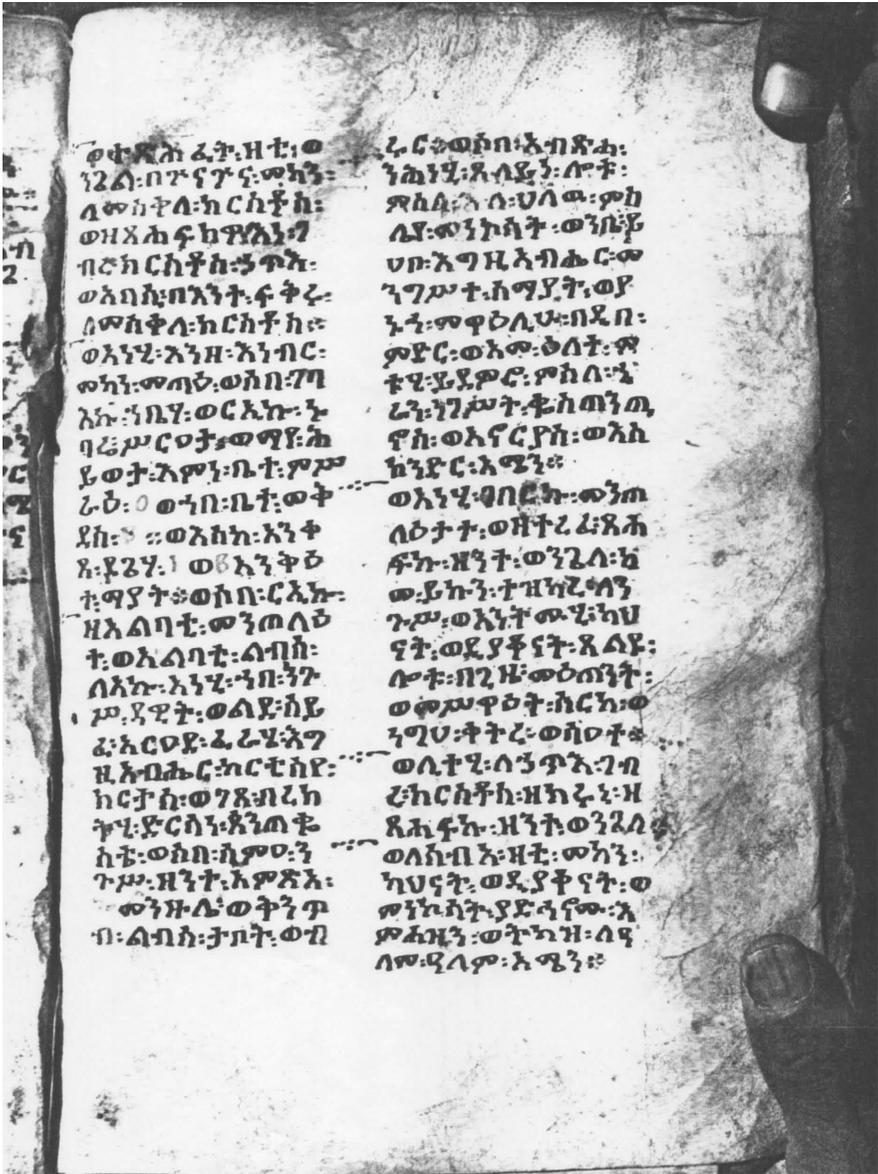 ወተጽሕፈት፡ዛቲ፡ወ
ንጌል፡በጕናጕና፡መካን፡
ለመስቀለ፡ክርስቶስ፡
ወዘጸሐፍክዋ፡አነ፡ገ
ብሩ፡ክርስቶስ፡ኃጥእ፡
ወአባሲ፡በእንተ፡ፍቅሩ፡
ለመስቀለ፡ክርስቶስ።
ወአነሂ፡እንዘ፡እነብር፡
መካነ፡መጣዕ፡ወሶበ፡ገባ
እኩ፡ኀቤሃ፡ወርኢኩ፡ኑ
ባሬ፡ሥርዐታ፡ወማየ፡ሕ
ይወት፡እምነ፡ቤተ፡ምሥ
ራዕ፡ ወኀበ፡ቤተ፡ወቅ
ደስ፡ ።ወእስከ፡አንቀ
ጸ፡ደጌሃ፡ ወ አንቅዕ
ተ፡ማያት።ወሶበ፡ርኢኩ፡
ዘአልባቲ፡መንጦላዕ
ት፡ወአልባቲ፡ልብሰ፡
ለአኩ፡አነሂ፡ኀበ፡ንጉ
ሥ፡ዳዊት፡ወልደ፡ሰይ
ፈ፡አርዐደ፡ፈራሄ፡እግ
ዚአብሔር፡ካርቲስየ፡
ክርታስ፡ወገጸ፡ብረክ
ትሂ፡ድርሳነ፡ጰንጠቈ
ስቴ፡ወሶበ፡ሰምዐ፡ን
ጉሥ፡ዘንተ፡አምጽአ፡
መንዙሌ፡ወቅንጥ
ብ፡ልብሰ፡ታቦት፡ወብ
ሩር።ወሶበ፡አብጽሐ፡
ንሕነሂ፡ጸለይነ፡ሎቱ፡
ምስለ፡እለ፡ሀለዉ፡ምስ
ሌየ፡መንኮሳት፡ወንቤ፡ይ
ሀቦ፡እግዚአብሔር፡መ
ንግሥተ፡ሰማያት፡ወያ
ኑኅ፡መዋዕሊሁ፡በዲበ፡
ምድር፡ወእመ፡ዕለት፡ሞ
ቱሂ፡ይደምሮ፡ምስለ፡ኄ
ራን፡ነገሥት፡ቈስጠንጢ
ኖስ፡ወአኖርያስ፡ወእስ
ከንድር፡አሜን።
ወአነሂ፡ገበርኩ፡መንጦ
ላዕታተ፡ወዘተረፈ፡ጸሐ
ፍኩ፡ዘንተ፡ወንጌለ፡ከ
መ፡ይኩን፡ተዝካረ፡ለን
ጉሥ፡ወአንትሙሂ፡ካህ
ናት፡ወዲያቆናት፡ጸልዩ፡
ሎቱ፡በጊዜ፡መዕጠንት፡
ወመሥዋዕት፡ሰርከ፡ወ
ነግህ፡ቀትረ፡ወሰዐተ።
ወሊተሂ፡ለኃጥእ፡ገብ
ረ፡ክርስቶስ፡ዘክሩኒ፡ዘ
ጸሐፍኩ፡ዘንተ፡ወንጌለ፡
ወለሰብአ፡ዛቲ፡መካን፡
ካህናት፡ወዲያቆናት፡ወ
መንኮሳት፡ያድኅኖሙ፡እ
ምሐዘን፡ወትካዝ፡ለዓ
ለመ፡ዓለም፡አሜን።